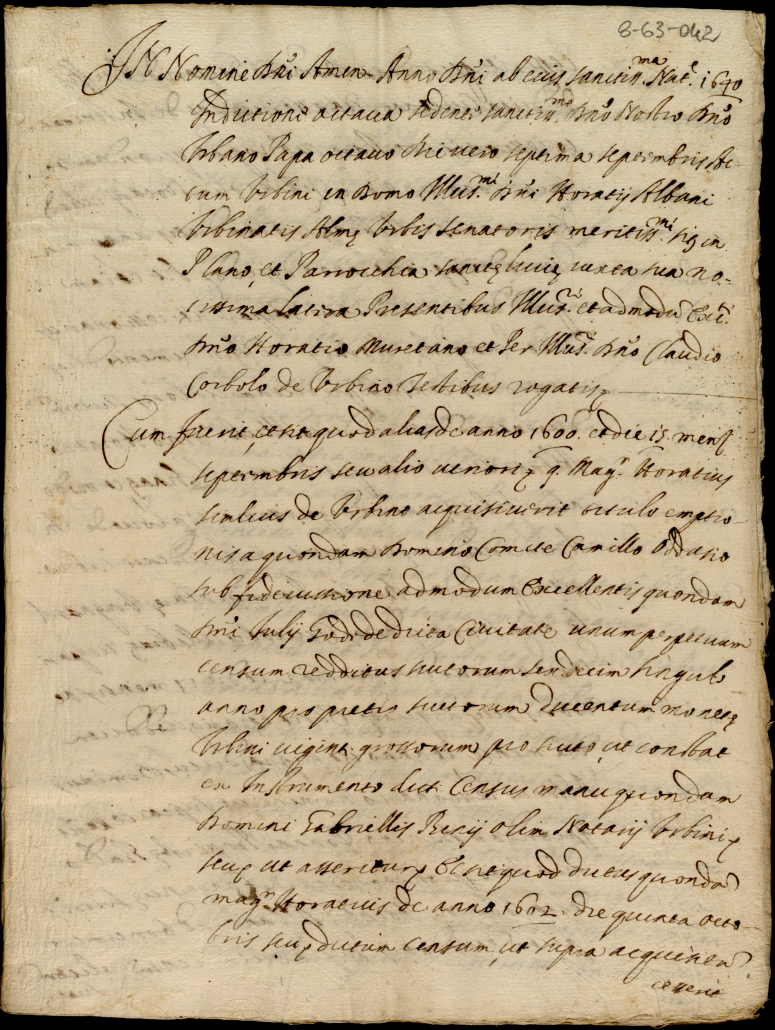 8-63-042
IN Nomine Dñi Amen Anno Dñi ab eius sanctiss.ma Nat.e 1640
Indictione octaua sedente sanctiss.mo Dño Nostro Dño
Vrbano Papa octauo Die uero septima septembris Ac
tum Vrbini in Domo Illus.mi Dñi Horatij Albani
Vrbinatis Almę Vrbis senatoris meritiss.mi sig in
Plano, et Parrocchia sanctę lucię iuxta sua no-
tissima latera Presentibus Illus.ri et admodũ Exc.ti
Dño Horatio Muretano et Per Illus.ri Dño Claudio
Corbolo de Vrbino testibus rogatis
Cum fuerit, et sit quod alias de anno 1600. et die 15. mens
septembris seu alio ueriori q. Mag.r Horatius
de Vrbino acquisiuerit titulo emptio
nis a quondam Domino Comite Camillo Oddasio
sub fideiussione admodum Excellentis quondam
Dñi Iulij de dicta Ciuitate unum perpetuum
censum redditus scutorum sexdecim singulo
anno pro pretio scutorum ducentum monetę
Vrbini uigint. grossorum pro scuto, ut constat
ex Instrumento dict. Census manu quondam
Domini Gabriellis olim Notarij Vrbini
ut asseritur Et quod dictus quondã
mag.r Horatius de anno 1602. die quinta octo-
bris dictum censum, ut supra acquisitũ
cesserit